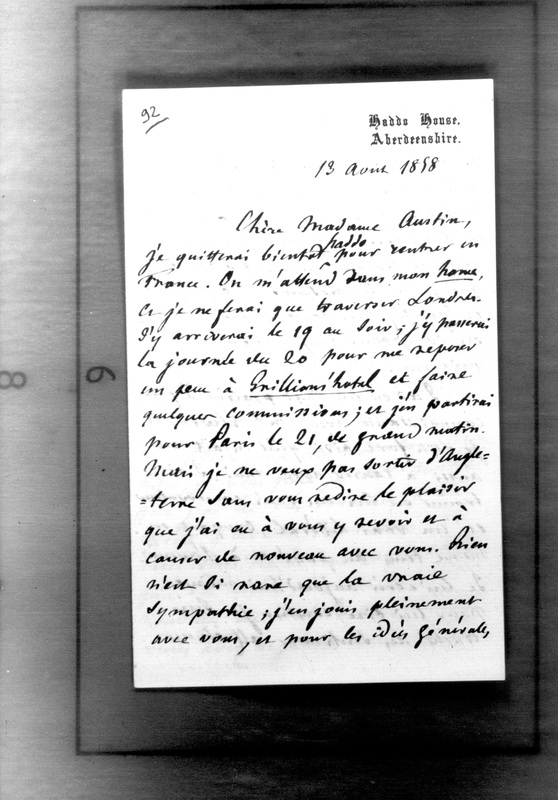 92
Haddo House,
Aberdeenshire.
13 Aout 1858
Chère Madame Austin,
je quitterai bientot haddo pour rentrer en
France. On m'attend dans mon home,
et je ne ferai que traverser Londres.
J'y arriverai le 19 au soir; j'y passerai
la journée du 20 pour me reposer
un peu à Grillion's hotel et faire
quelques commissions; et j'en partirai
pour Paris le 21, de grand matin.
Mais je ne veux pas sortir d'Angle=
=terre sans vous redire le plaisir
que j'ai eu à vous y revoir et à
causer de nouveau avec vous. Rien
n'est si rare que la vraie
sympathie; j'en jouis pleinement
avec vous, et pour les idées générales
6
8